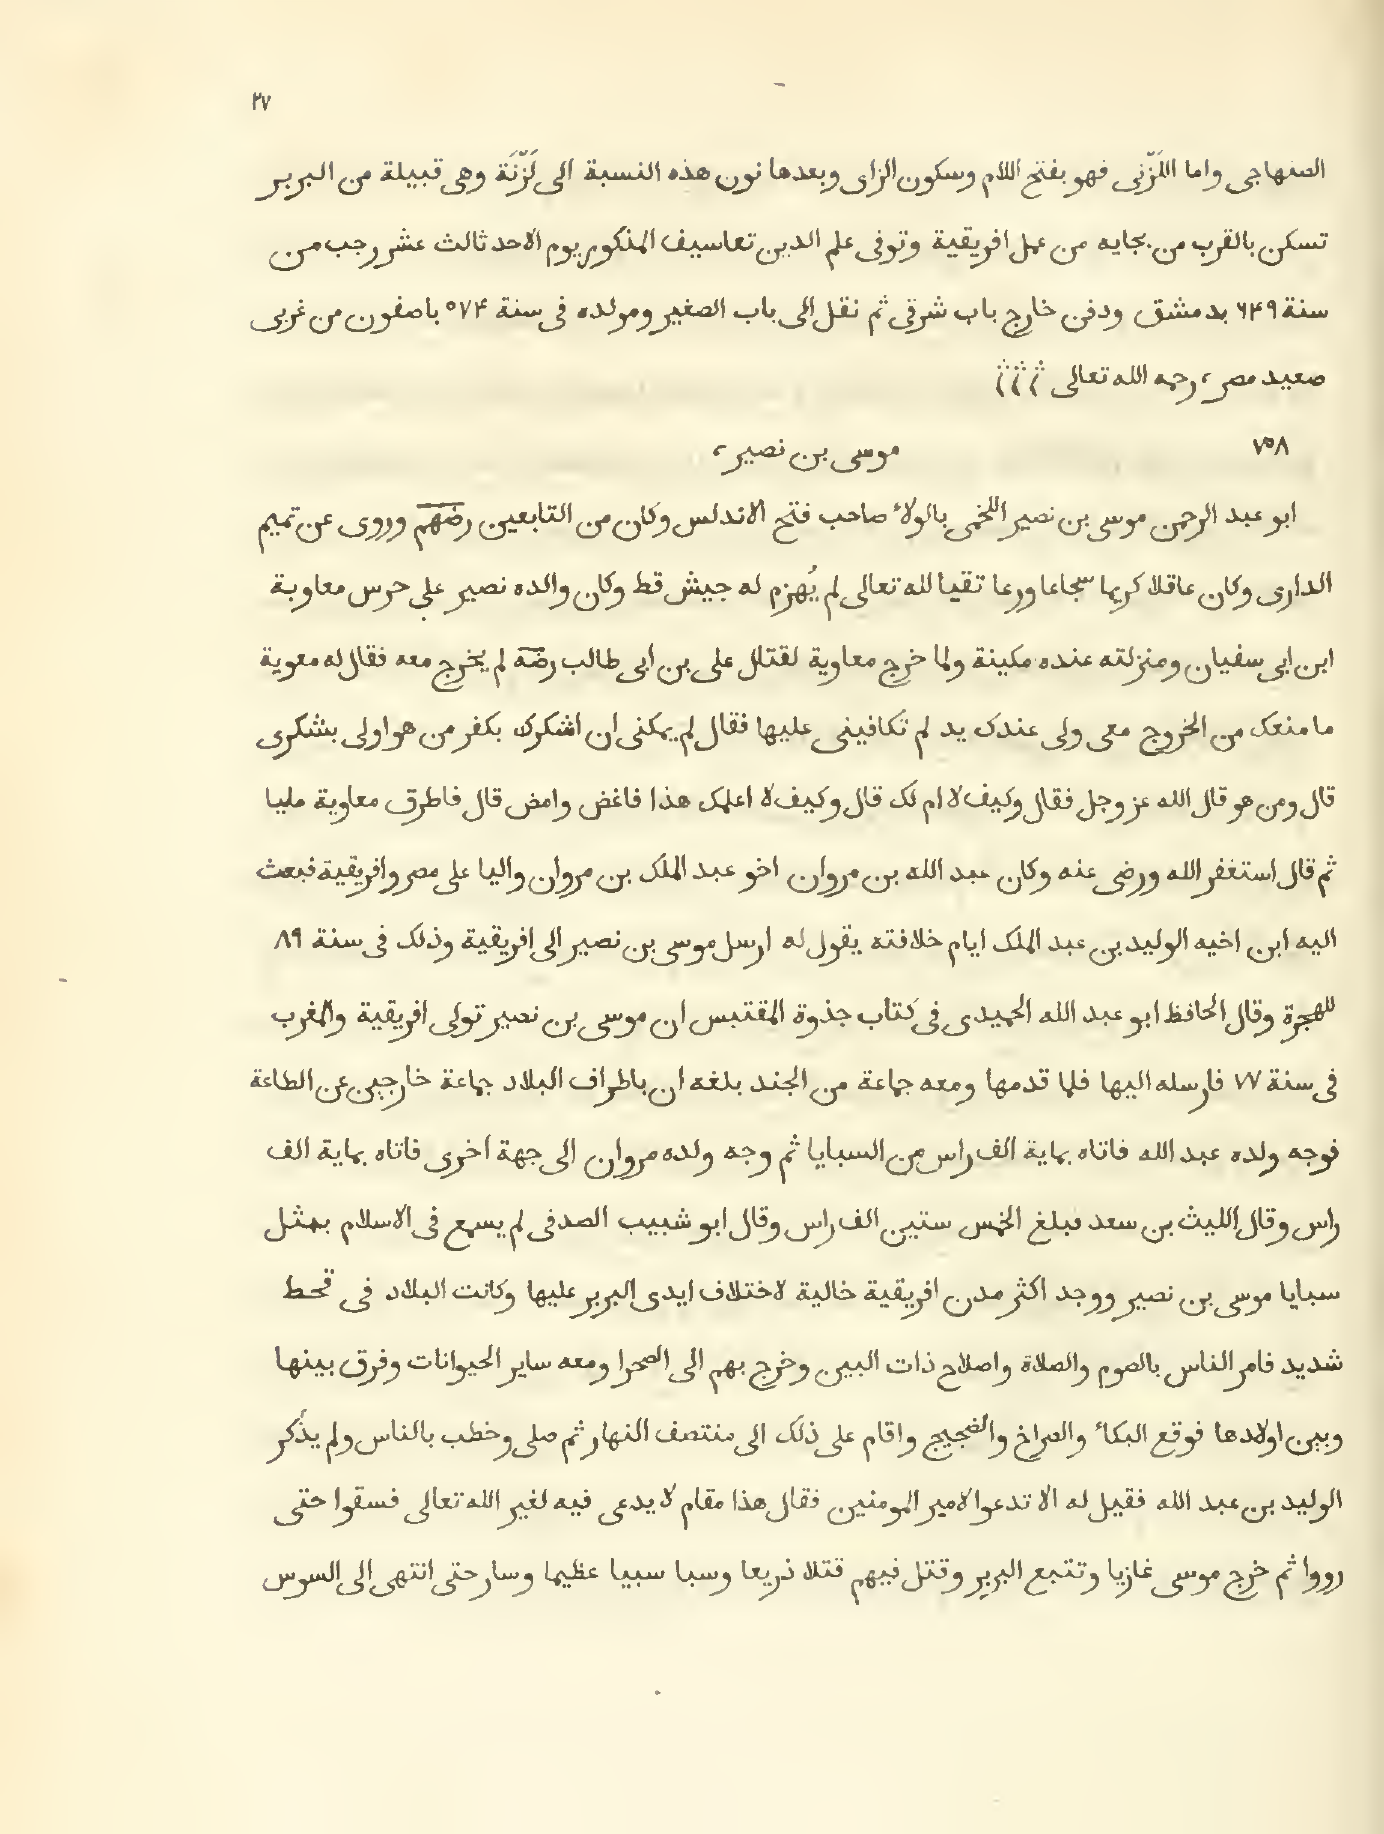 ٢٧
الصنهاجى واما اللَزّنى فهو بفتح اللام وسكون الزاى وبعدها نون هذه النسبة الى لَزّنَة وهى قبيلة من البربر
تسكن بالقرب من بجايه من عمل افريقية وتوفى علم الدين تعاسيف المذكور يوم الاحد ثالث عشر رجب من
سنة ٦۴٩ بدمشق ودفن خارج باب شرقى ثم نقل الى باب الصغير ومولده فى سنة ٥٧۴ باصفون من غربى
صعيد مصر، رحمه الله تعالى
٧٥٨ موسى بن نصير،
ابو عبد الرحمن موسى بن نصير اللخمى بالولاء صاحب فتح الاندلس وكان من التابعين رضهم وروى عن تميم
الدارى وكان عاقلا كريما شجاعا ورعا تقيا لله تعالى لم يُهزم له جيش قط وكان والده نصير على حرس معاوية
ابن ابى سفيان ومنزلته عنده مكينة ولما خرج معاوية لقتال على بن ابى طالب رضه لم يخرج معه فقال له معوية
ما منعك من الخروج معى ولى عندك يد لم تكافينى عليها فقال لم يمكنى ان اشكرك بكفر من هو اولى بشكرى
قال ومن هو قال الله عز وجل فقال وكيف لا ام لك قال وكيف لا اعلمك هذا فاغض وامض قال فاطرق معاوية مليا
ثم قال استغفر الله ورضى عنه وكان عبد الله بن مروان اخو عبد الملك بن مروان واليا على مصر وافريقية فبعث
اليه ابن اخيه الوليد بن عبد الملك ايام خلافته يقول له ارسل موسى بن نصير الى افريقية وذلك فى سنة ٨٩
للهجرة وقال الحافظ ابو عبد الله الحميدى فى كتاب جذوة المقتبس ان موسى بن نصير تولى افريقية والمغرب
فى سنة ٧٧ فارسله اليها فلما قدمها ومعه جماعة من الجند بلغه ان باطراف البلاد جماعة خارجين عن الطاعة
فوجه ولده عبد الله فاتاه بماية الف راس من السبايا ثم وجه ولده مروان الى جهة اخرى فاتاه بماية الف
راس وقال الليث بن سعد فبلغ الخمس ستين الف راس وقال ابو شبيب الصدفى لم يسمع فى الاسلام بمثل
سبايا موسى بن نصير ووجد اكثر مدن افريقية خالية لاختلاف ايدى البربر عليها وكانت البلاد فى قحط
شديد فامر الناس بالصوم والصلاة واصلاح ذات البين وخرج بهم الى الصحرا ومعه ساير الحيوانات وفرق بينها
وبين اولادها فوقع البكاء والصراخ والضجيج واقام على ذلك الى منتصف النهار ثم صلى وخطب بالناس ولم يذكر
الوليد بن عبد الله فقيل له الا تدعوا لامير المومنين فقال هذا مقام لا يدعى فيه لغير الله تعالى فسقوا حتى
رووا ثم خرج موسى غازيا وتتبع البربر وقتل فيهم قتلا ذريعا وسبا سبيا عظيما وسار حتى انتهى الى السوس